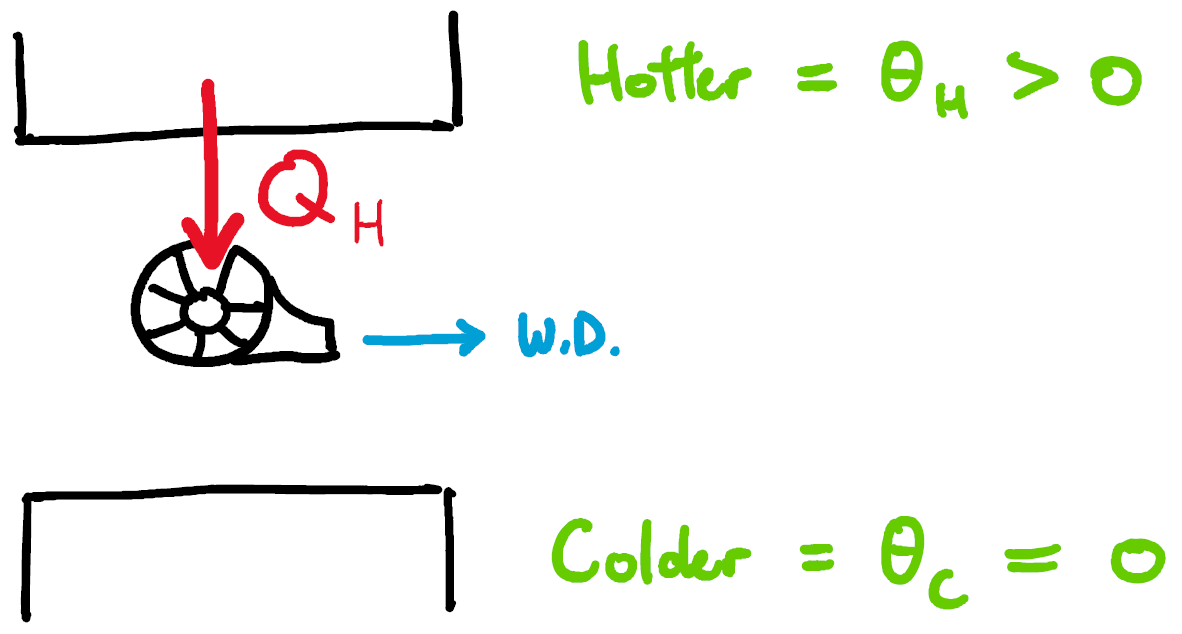 Hotter = θ_H > 0
Q_H
W.D.
Colder = θ_C = 0